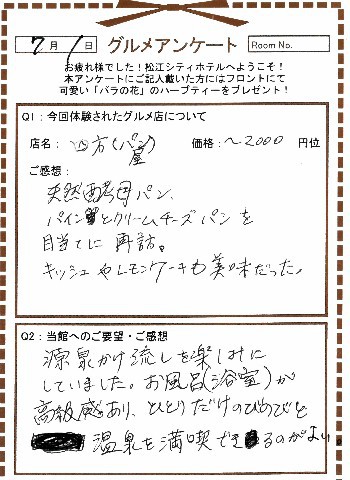 7月1日 グルメアンケート Room No.
お疲れ様でした！松江シティホテルへようこそ！
本アンケートにご記入戴いた方にはフロントにて
可愛い「バラの花」のハーブティーをプレゼント！
Q1：今回体験されたグルメ店について
店名： 四方（パン屋） 価格：～2000 円位
ご感想：
天然酵母パン、
パインとクリームチーズパンを
目当てに再訪。
キッシュやレモンケーキも美味だった。
Q2：当館へのご要望・ご感想
源泉かけ流しを楽しみに
していました。お風呂（浴室）が
高級感あり、ひとりだけでのびのびと
温泉を満喫できるのがよい。